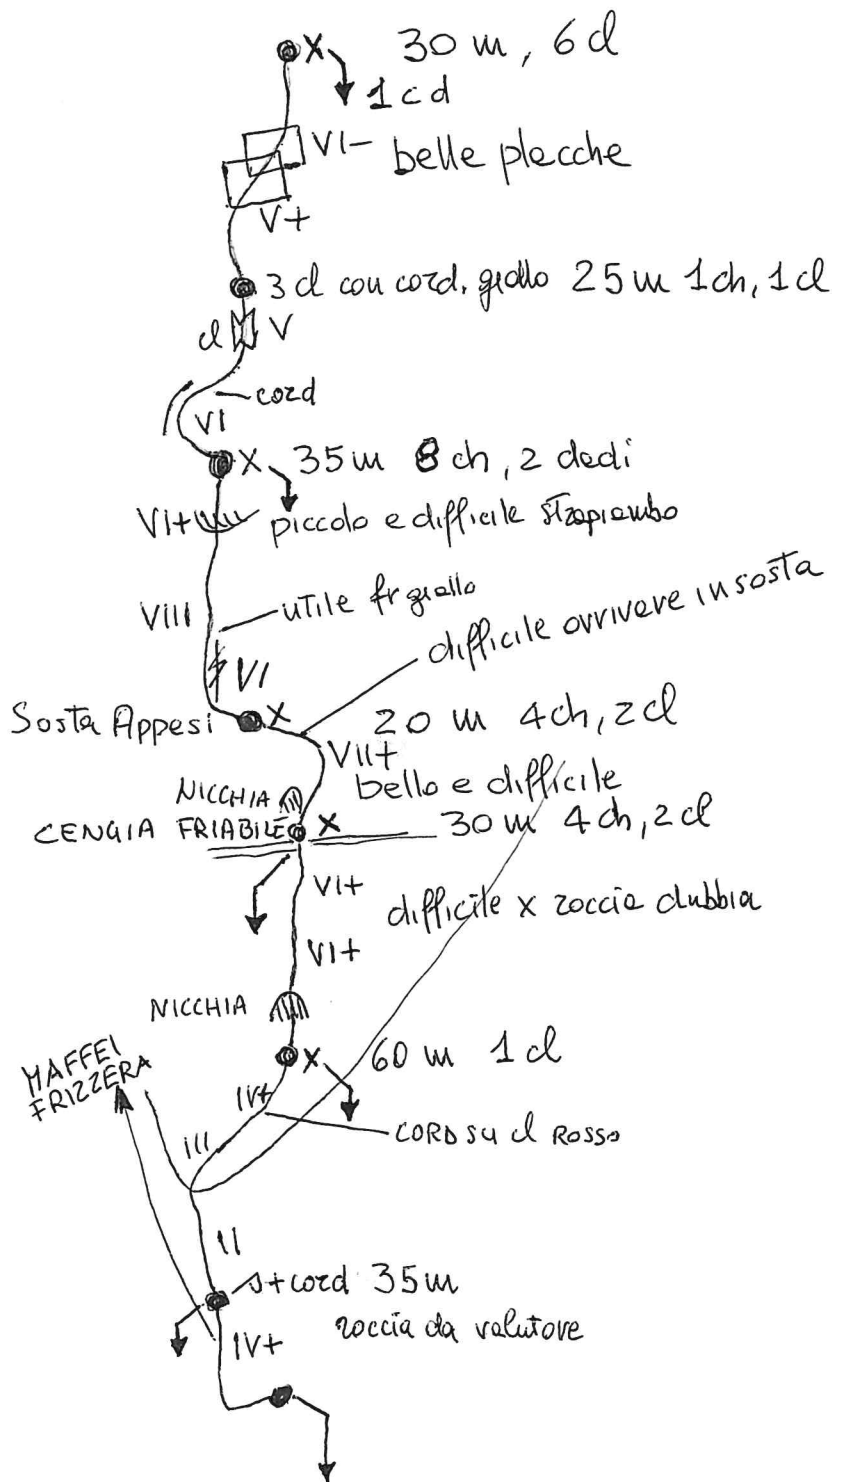 30 m, 6 cl
1 cd
VI- belle placche
V+
3 cl con cord. giallo 25 m 1 ch, 1 cl
cl V
cord
VI
35 m 8 ch, 2 dadi
VI+ piccolo e difficile strapiombo
utile fr giallo
VIII
difficile arrivare in sosta
VI
Sosta Appesi
20 m 4 ch, 2 cl
VII+
bello e difficile
NICCHIA
CENGIA FRIABILE
30 m 4 ch, 2 cl
VI+
difficile x roccia dubbia
VI+
NICCHIA
60 m 1 cl
MAFFEI
FRIZZERA
IV+
CORD SU cl ROSSO
III
II
cord 35 m
roccia da valutare
IV+